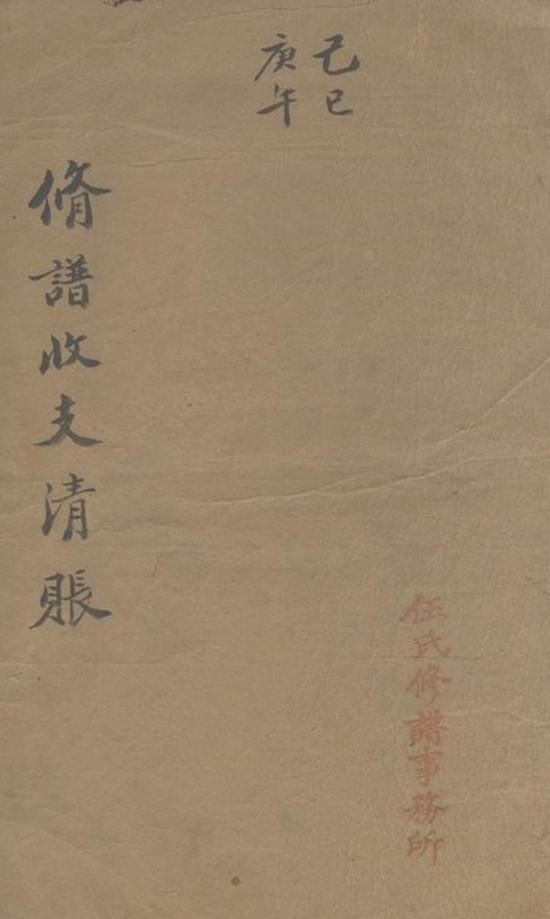 己巳
庚午
脩譜收支清賬
伍氏修譜事務所